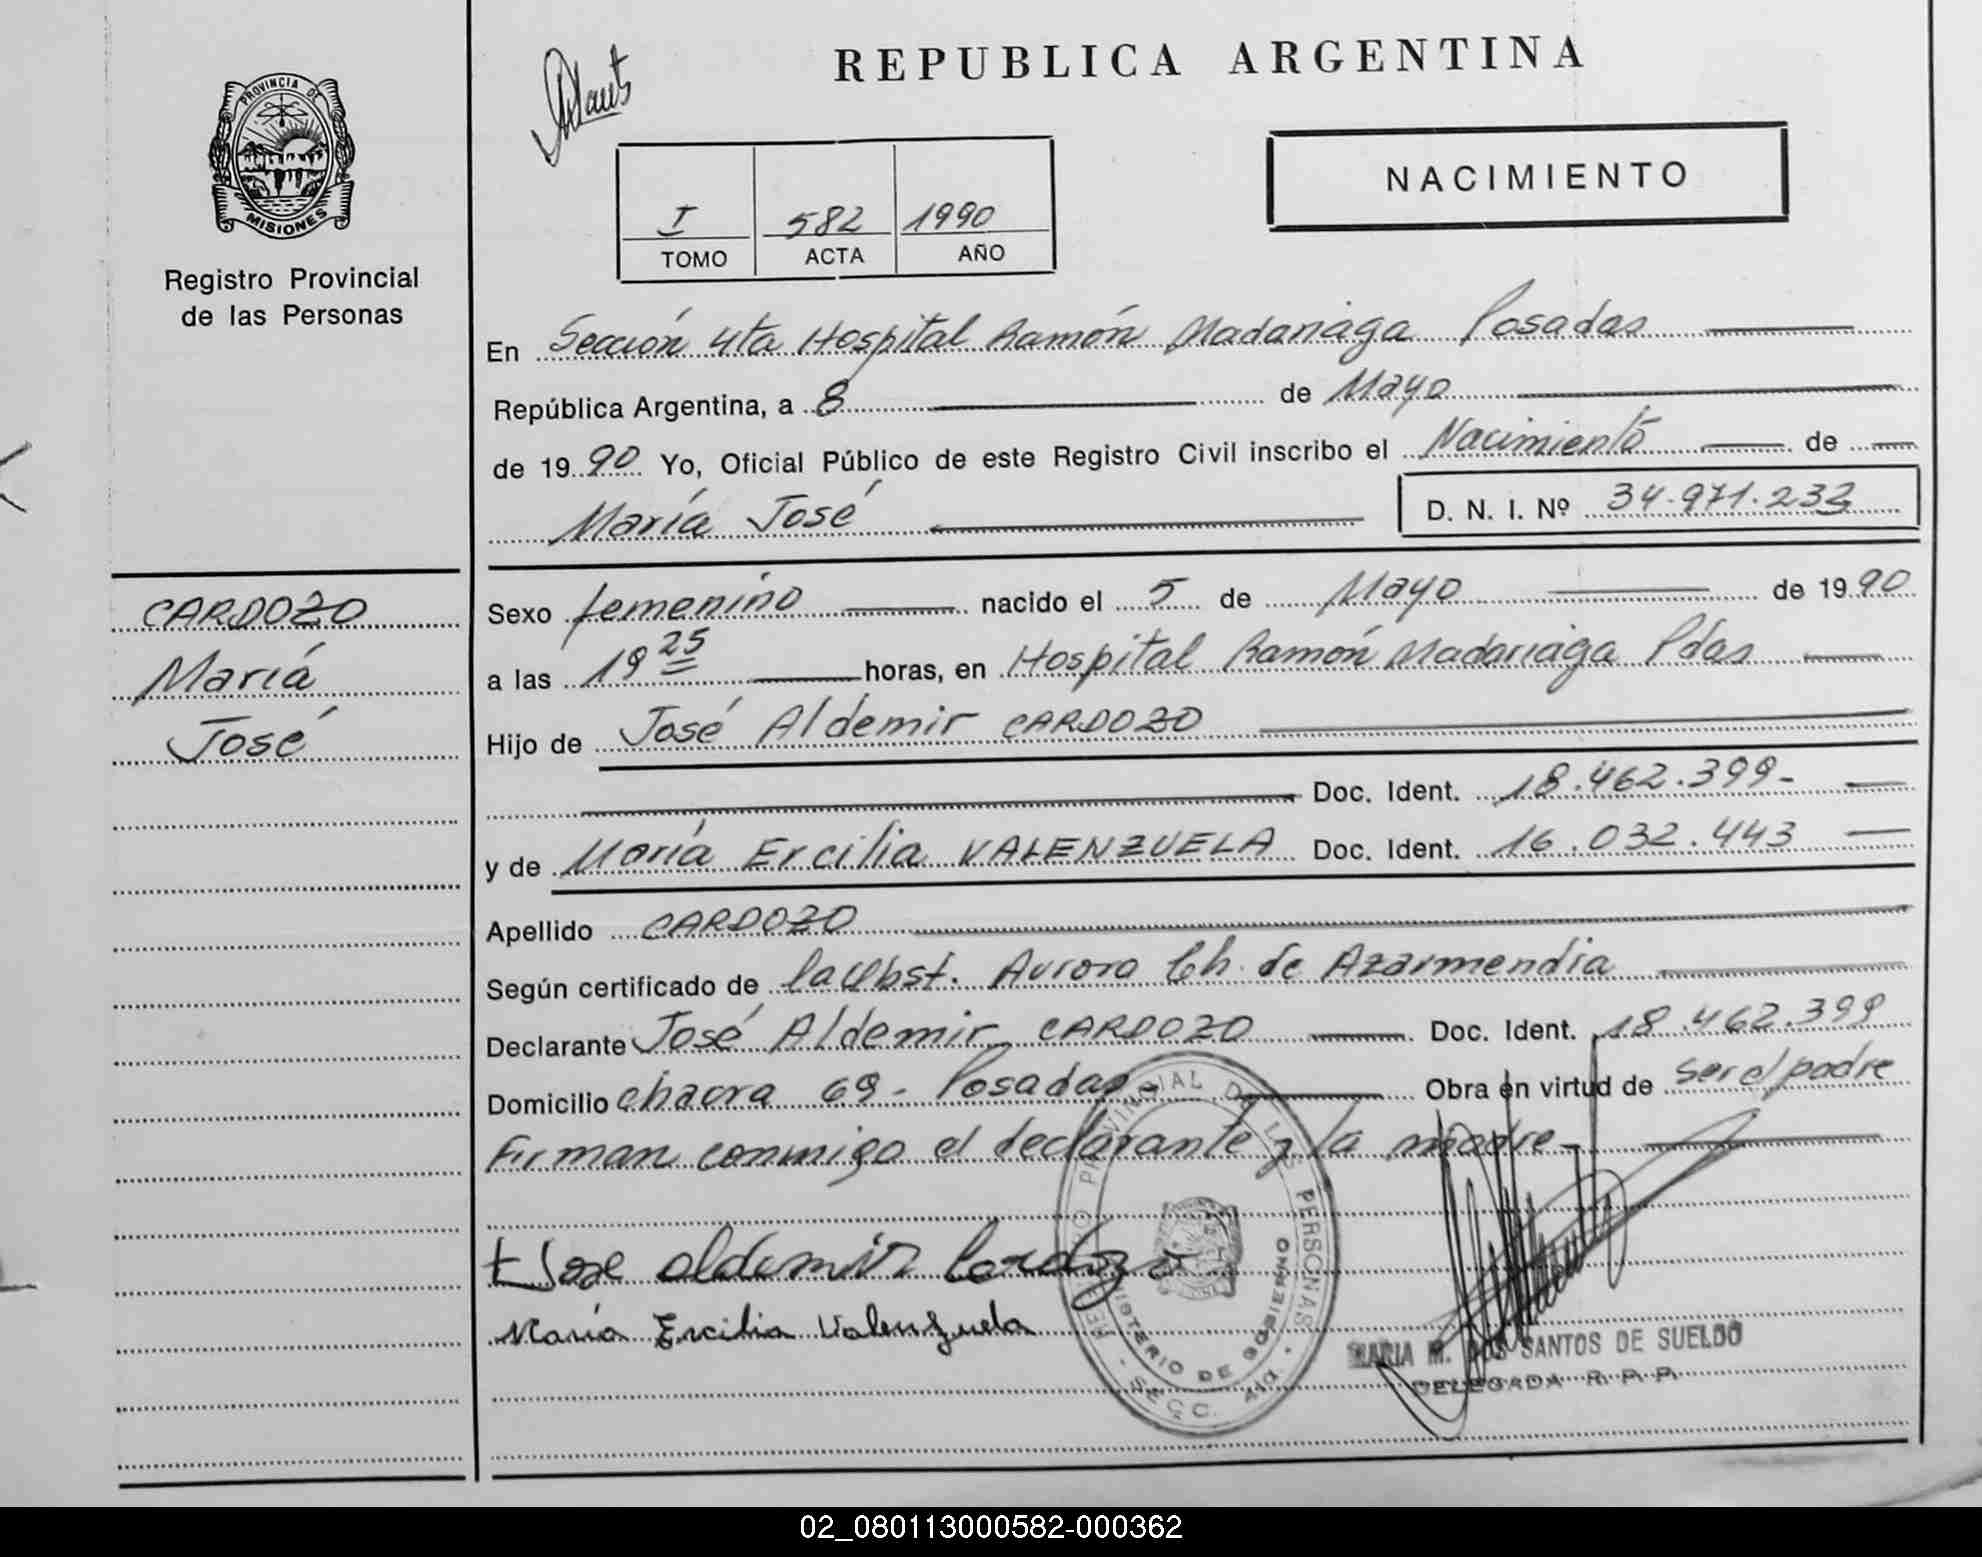 REPUBLICA ARGENTINA
PROVINCIA DE
MISIONES
Registro Provincial
de las Personas
I 582 1990
TOMO ACTA AÑO
NACIMIENTO
En Sección 4ta Hospital Ramón Madariaga Posadas
República Argentina, a 8 de Mayo
de 1990 Yo, Oficial Público de este Registro Civil inscribo el Nacimiento de
María José D. N. I. Nº 34.971.233
CARDOZO
María
José
Sexo femenino nacido el 5 de Mayo de 1990
a las 19 25 horas, en Hospital Ramón Madariaga Pdas
Hijo de José Aldemir CARDOZO
Doc. Ident. 18.462.399-
y de María Ercilia VALENZUELA Doc. Ident. 16.032.443
Apellido CARDOZO
Según certificado de la Obst. Aurora Ch. de Azarmendia
Declarante José Aldemir CARDOZO Doc. Ident. 18.462.399
Domicilio chacra 69- Posadas- Obra en virtud de ser el padre
Firman conmigo el declarante y la madre-
Jose aldemir Cardozo
María Ercilia Valenzuela
REGISTRO PROVINCIAL DE LAS PERSONAS
MINISTERIO DE GOBIERNO
SECC. 4ta.
MARIA M. DOS SANTOS DE SUELDO
DELEGADA R. P. P.
02_080113000582-000362